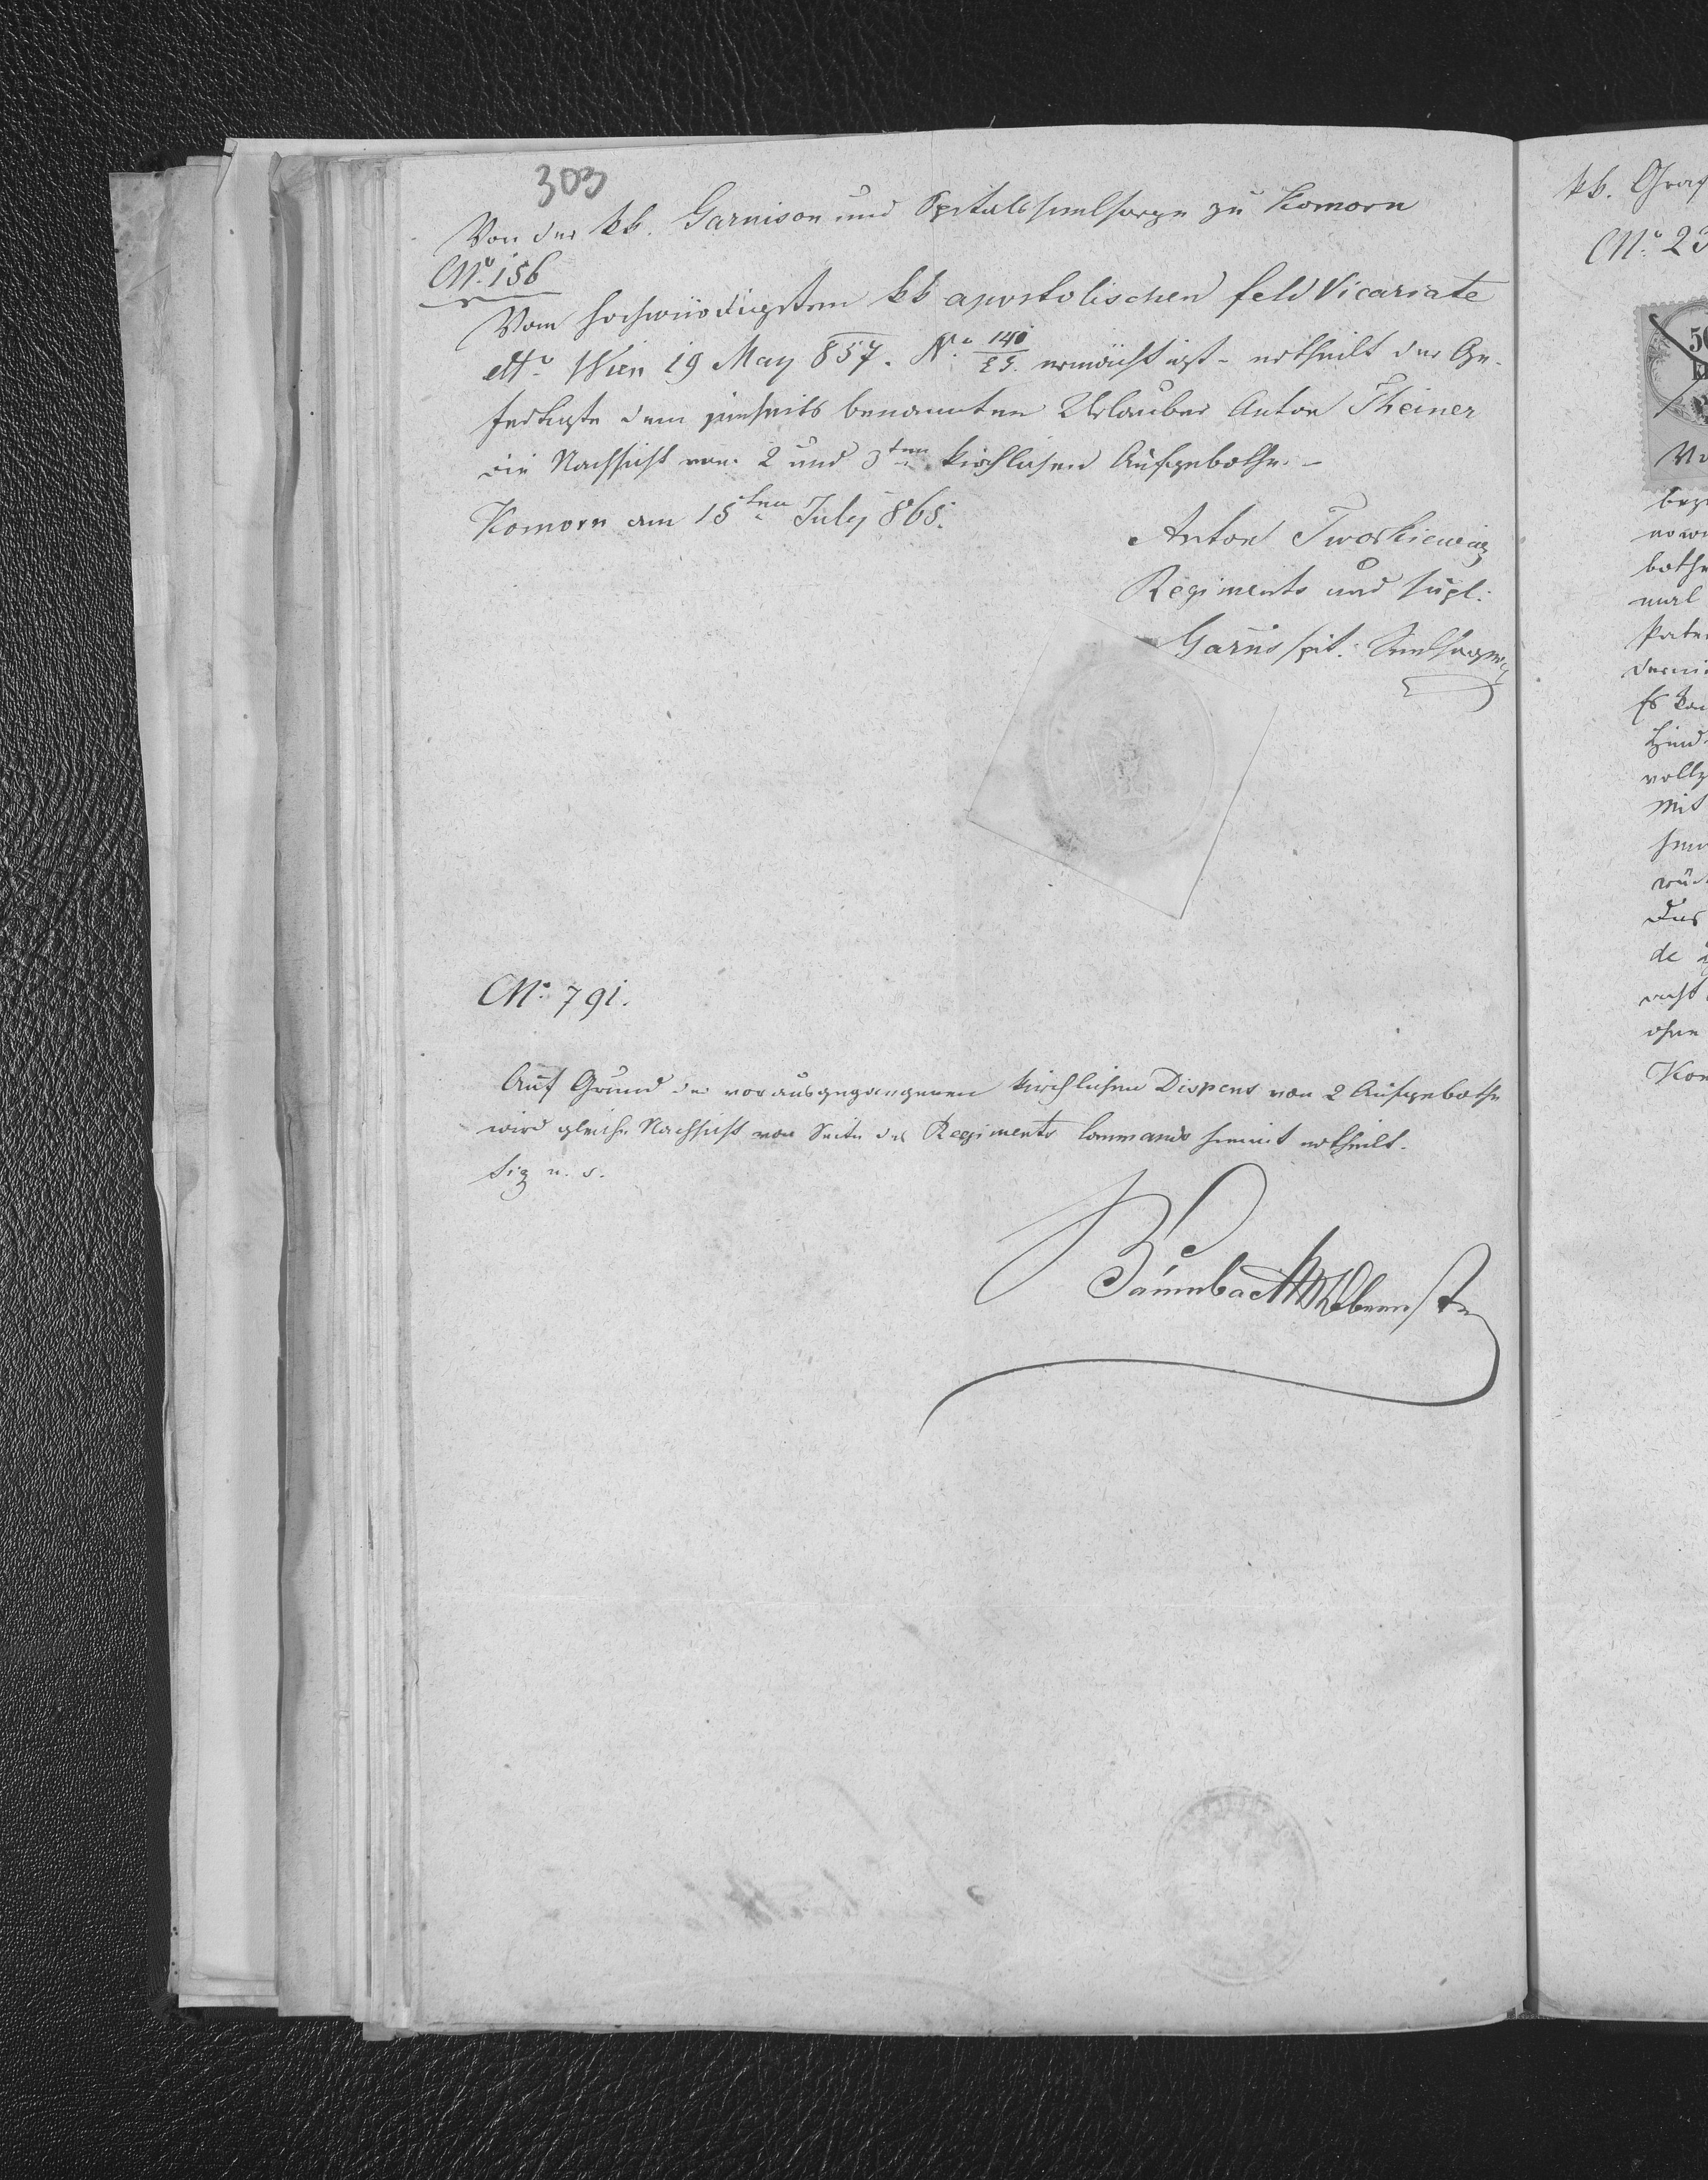 303
Von der kk. Garnison und Spitalsseelsorge zu Komorn
M: 156
Vom hochwürdigsten kk apostolischen feld Vicariate
dtto Wien 19 May 857. No 140/25. ermächtigt - ertheilt der Ge-
fertigte dem jenseits benannten Urlauber Anton Theiner
die Nachsicht vom 2 und 3ten kirchlichen Aufgebothe. -
Komorn am 15ten July 865.
Anton Tworkiewicz
Regiments und supl:
Garns spit: Seelsorger
M: 791.
Auf Grund der vorausgegangenen kirchlichen Dispens von 2 Aufgebothe
wird gleiche Nachsicht von Seite des Regiments Commando hiemit ertheilt.
Sig u. s.
Oberst
kk. Graf
No: 23
50